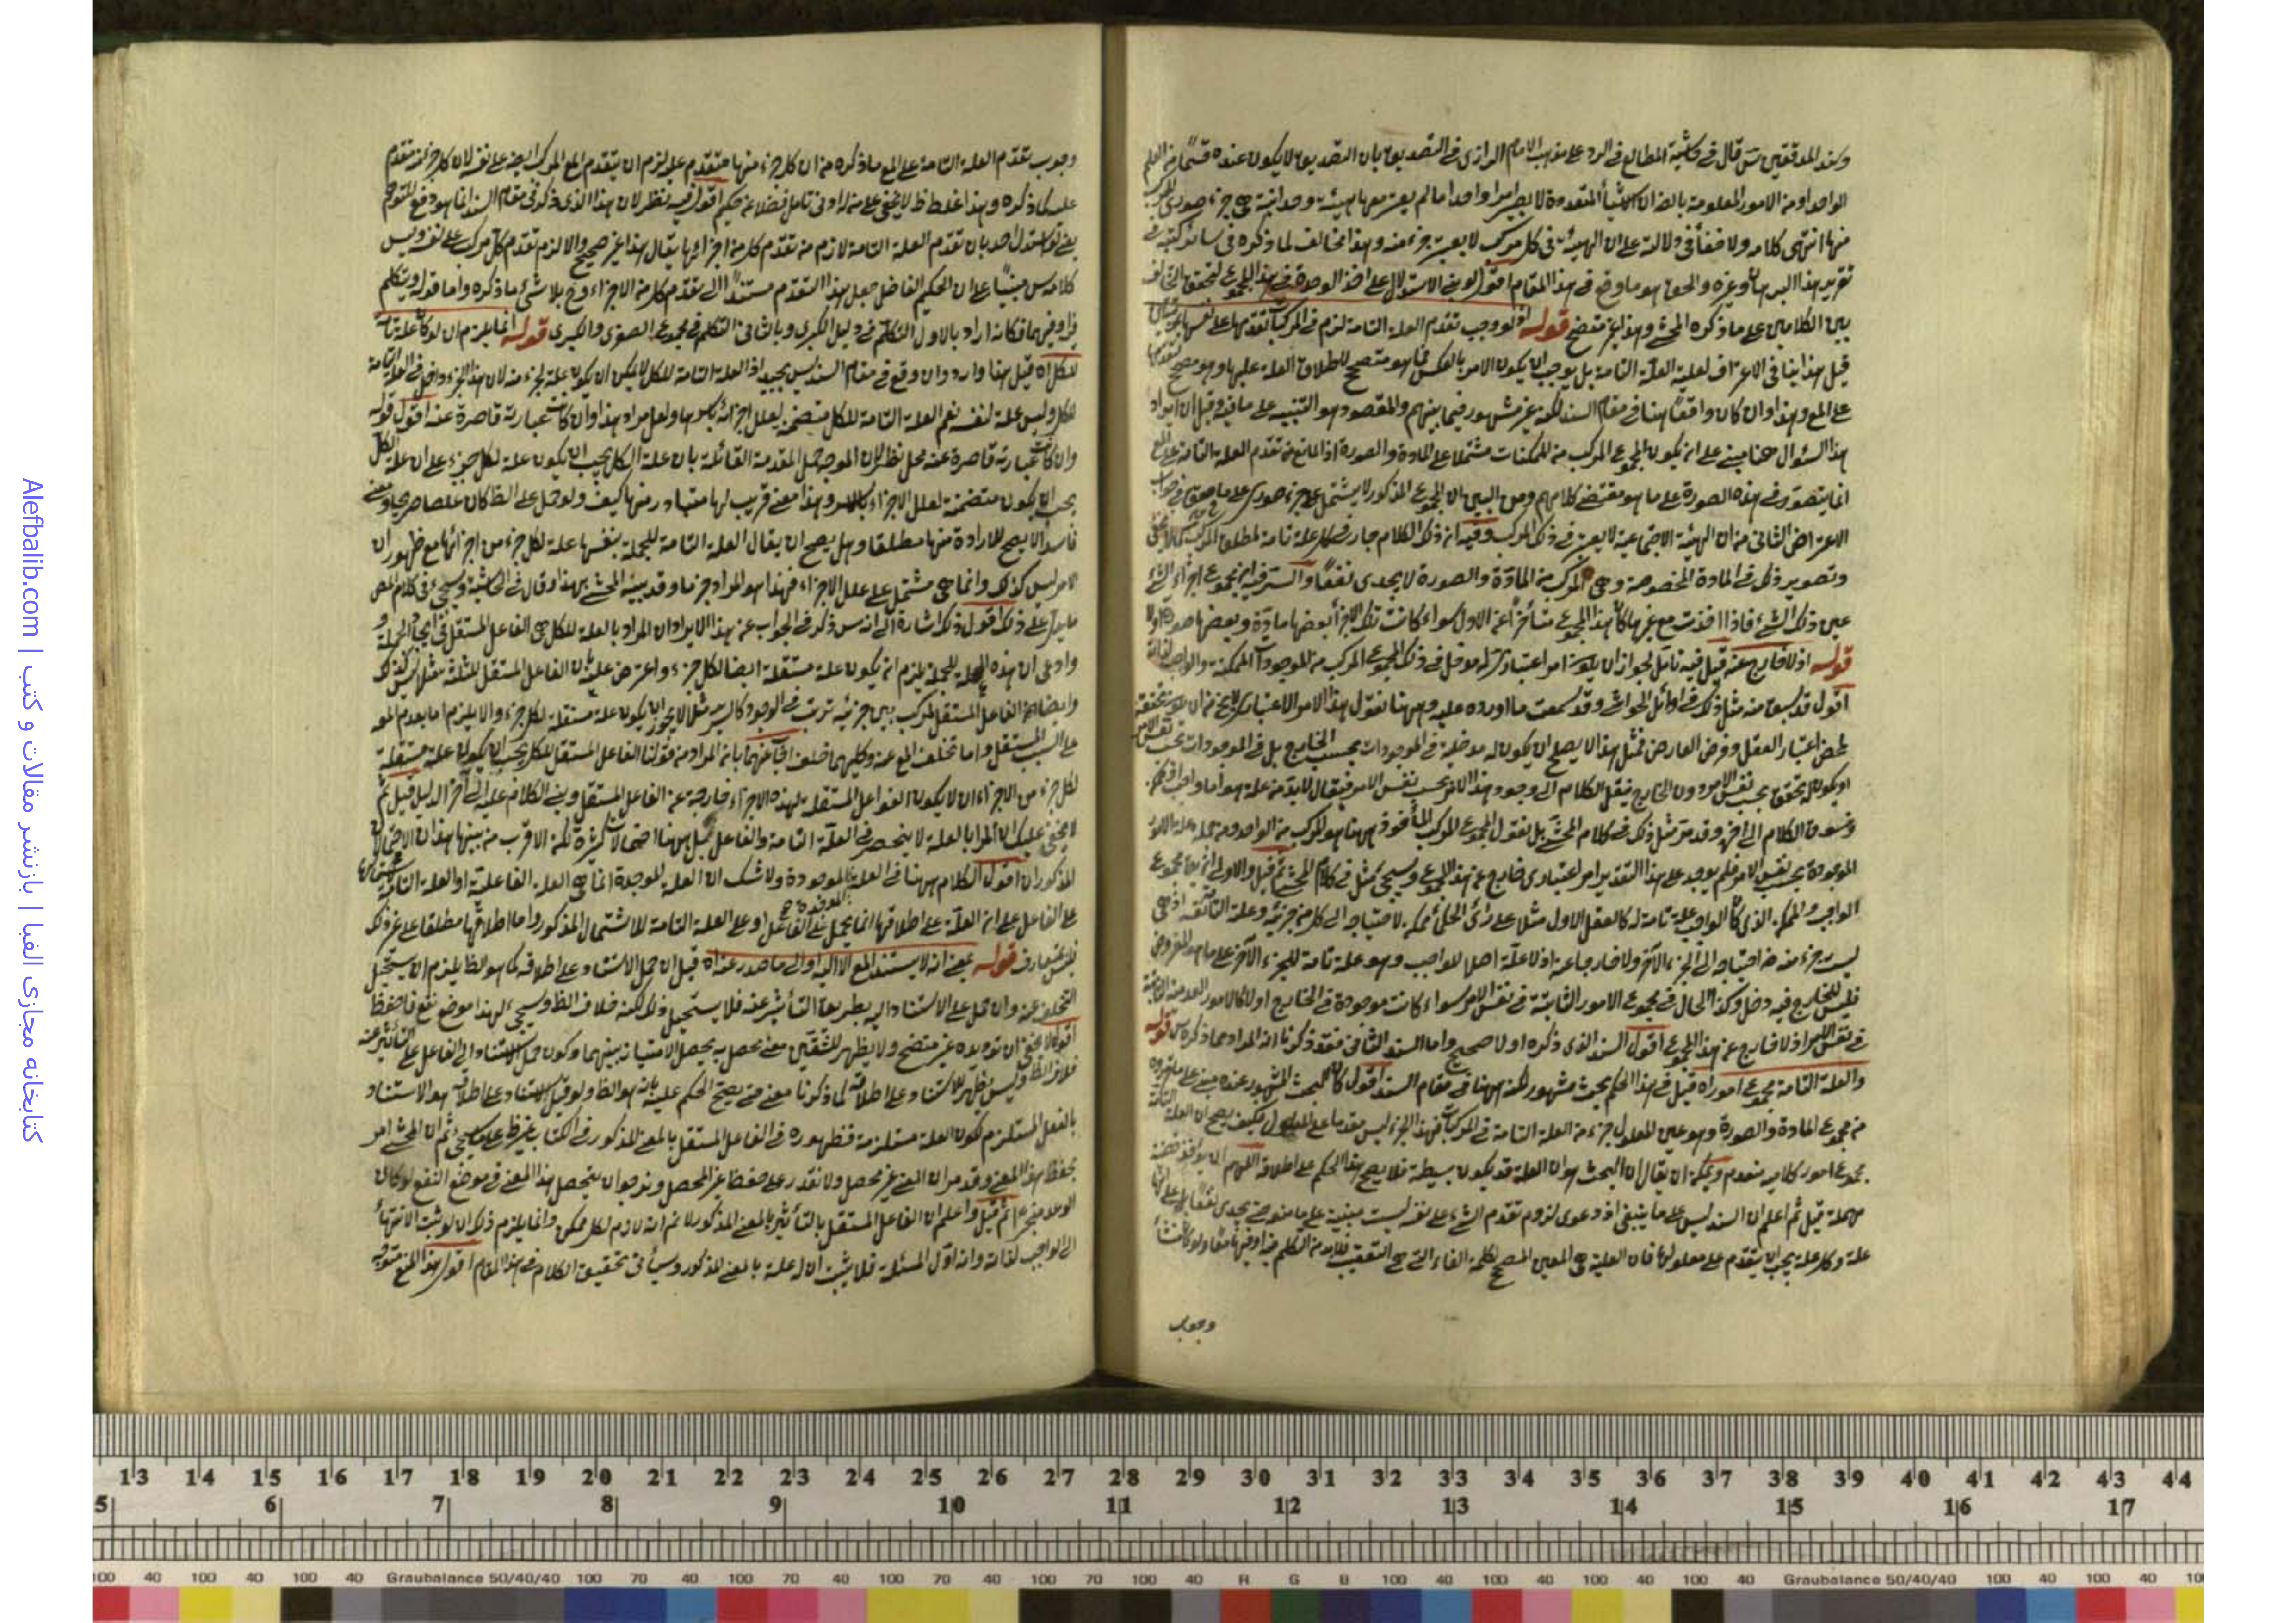 وسند المدققين س قال في حاشية المطالع في الرد على مذهب الامام الرازي في التصديق بان التصديق لا يكون عنده قسما من العلم
الواحد او من الامور المعلومة بالضر ان الاشياء المتعددة لا يصير امرا واحدا ما لم يعتبر معها هيئة وحدانية هي جزء صوري
منها انتهى كلامه ولا خفاء في دلالته على ان الهيئة في كل مركب لا يعتبر جزء منه وهذا مخالف لما ذكره في سائر كتبه في
تقرير هذا البرهان وغيره والحق هو ما وقع في هذا المقام اقول لو بني الاستدلال على اخذ الوحدة في هذا المجموع لتحقق التخالف
بين الكلامين على ما ذكره المحشي وهذا غير متضح قوله اذ لو وجب تقدم العلة التامة لزم في المركب تقدمها على نفسها
قيل هذا ينافي الاعتراف لعلية العلة التامة بل يوجب ان يكون الامر بالعكس فما هو متصحح لاطلاق العلة عليها وهو مصحح
على المع وهذا وان كان واقعا هنا في مقام السند لكنه غير مشهور فيما بينهم والمقصود هو التنبيه على ما فيه وقيل ان ايراد
هذا السؤال هنا مبني على انه يكون المجموع المركب من الممكنات مشتملا على المادة والصورة اذ المانع من تقدم العلة التامة على المع
انما يتصور في هذه الصورة على ما هو مقتضى كلامهم ومن البين ان المجموع المذكور لا يشتمل على جزء صوري على ما حقق في جواب
الاعتراض الثاني من ان الهيئة الاجتماعية لا يعتبر في ذلك المركب وفيه انه ذلك الكلام جار في كل علة تامة لمطلق المركب كما لا يخفى
وتصوير ذلك في المادة المخصوصة وهي المركب من المادة والصورة لا يجدى نفعا والسر فيه ان مجموع اجزاء الشيء
عين ذلك الشيء فاذا اخذت مع غيرها كان هذا المجموع متأخرا عن الاول سواء كانت تلك الاجزاء بعضها مادة وبعضها صورة او لا
قوله اذ لا خارج عنه قيل فيه تأمل لجواز ان يكون امر اعتباري له مدخل في ذلك المجموع المركب من الموجودات الممكنة والواجب لذاته
اقول قد سبق منه مثل ذلك في اوائل الحواشي وقد سمعت ما اورده عليه وههنا نقول هذا الامر الاعتباري لا يخ من ان يكون تحققه
بمحض اعتبار العقل وفرض العارض فمثل هذا لا يصلح ان يكون له مدخلية في الموجودات بحسب الخارج بل في الموجودات بحسب نفس الامر
او يكون له تحقق بحسب نفس الامر دون الخارج ننقل الكلام الى وجود هذا الامر بحسب نفس الامر فيقال لا بد له من علة هو اما واجب او ممكن
ونسوق الكلام الى اخره وقد مر مثل ذلك في كلام المحشي بل نقول المجموع المركب المأخوذ ههنا هو المركب من الواحد ومن جملة الامور
الموجودة بحسب نفس الامر فلم يوجد على هذا التقدير امر اعتباري خارج عن هذا المجموع وسيجيء مثل في كلام المحشي قيل والاولى ان
الواجب والممكن الذي كان الواجب علة تامة له كالعقل الاول مثلا على رأي الحكماء ممكن لاحتياجه الى كل من جزئيه وعلته التامة اذ هي
ليست جزء منه ض احتياجه الى الجزء الآخر ولا خارجا عنه اذ لا علة اصلا للواجب وهو علة تامة للجزء الآخر على ما هو المفروض
فليس للخارج فيه دخل وكذا الحال في مجموع الامور الثابتة في نفس الامر سواء كانت موجودة في الخارج او لا كالامور العدمية الثابتة
في نفس الامر اذ لا خارج عن هذا المجموع اقول السند الذي ذكره اولا صحيح واما السند الثاني فقد ذكرنا انه المراد مما ذكره س قوله
والعلة التامة مجموع امور اه قيل في هذا الحكم بحث مشهور لكنه ههنا في مقام السند اقول كان البحث المشهور عنده مبني على ما
من مجموع المادة والصورة وهو عين المعلول جزء من العلة التامة في المركبات فهذا الجزء ليس مقدما على المعلول فكيف يصح ان العلة
مجموع امور كلامه منعدم ويمكن ان يقال ان البحث هو ان العلة قد يكون بسيطة فلا يصح هذا الحكم على اطلاقه اللهم الا ان يؤخذ قضية
مهملة قيل ثم اعلم ان السند ليس على ما ينبغي اذ دعوى لزوم تقدم الشيء على نفسه ليست مبنية على ما منع حتى يجدى نفعا بل على
علة وكل علة يجب ان يتقدم على معلولها فان العلية هي المعنى المصحح لكلمة الفاء التي هي التعقيب فلا بد من التكلم في او فيهما معا ولو كانت
وجوب
وجوب تقدم العلة التامة على المع ما ذكره من ان كل جزء منها متقدم عليه لزم ان يتقدم المع المركب ايضا على نفسه لان كل جزء منه متقدم
عليه كما ذكره وهذا غلط ظ لا يخفى على من له ادنى تامل فضلا عن حكيم اقول فيه نظر لان هذا الذي ذكر في مقام السند انما هو دفع للتوهم
يعني لو استدل احد بان تقدم العلة التامة لازم من تقدم كل من اجزائها يقال هذا غير صحيح والا لزم تقدم كل مركب على نفسه وليس
كلامه س مبنيا على ان الحكيم الفاضل جعل هذا التقدم مستندا الى تقدم كل من الاجزاء وح بلا شيء ما ذكره واما قوله ويتكلم
في او فيهما فكانه اراد بالاول التكلم في دليل الكبرى وبالثاني التكلم في مجموع الصغرى والكبرى قوله انما يلزم ان لو كان علة تامة
للكل اه قيل هذا وارد وان وقع في مقام السند ليس بجيد اذ العلة التامة للكل لا يمكن ان يكون علة لجزء منه لان هذا الجزء داخل في العلة التامة
للكل وليس علة لنفسه نعم العلة التامة للكل متضمنة لعلل اجزائه باسرها ولعل مراده هذا وان كانت عبارته قاصرة عنه اقول قوله
وان كانت عبارته قاصرة عنه محل نظر لان الموجه حمل المقدمة القائلة بان علة الكل يجب ان يكون علة لكل جزء على ان علة الكل
يجب ان يكون متضمنة لعلل الاجزاء بالاسر وهذا معنى قريب لها متبادر منها كيف ولو حمل على الظ كان
فاسدا لا يصح للارادة منها مطلقا وهل يصح ان يقال العلة التامة للجملة بنفسها علة لكل جزء من اجزائها مع ظهور ان
الامر ليس كذلك وانما هي مشتمل على علل الاجزاء فهذا هو المراد جزما وقد بينه المحشي بهذا وقال في الحاشية وسيجيء في كلام المص
ما يدل على ذلك اقول ذلك اشارة الى انه س ذكر في الجواب عن هذا الايراد ان المراد بالعلة للكل هي الفاعل المستقل في ايجاد الجملة
وادعى ان هذه العلة للجملة يلزم انه يكون علة مستقلة ايضا لكل جزء واعترض عليه بان الفاعل المستقل للثلاثة مثلا ليس كذلك
وايضا الفاعل المستقل لمركب بين جزئيه ترتب في الوجود كالسرير مثلا لا يجوز ان يكون علة مستقلة لكل جزء والا يلزم اما تقدم المع
على السبب المستقل واما تخلف المع عنه وكليهما خلف اجاب عنهما بان المراد من قولنا الفاعل المستقل للكل يجب ان يكون علة مستقلة
لكل جزء من الاجزاء ان لا يكون الفواعل المستقلة لهذه الاجزاء خارجة عن الفاعل المستقل وبنى الكلام عليه الى آخر الدليل قيل ثم
لا يخفى عليك ان المراد بالعلة لا ينحصر في العلة التامة والفاعل قبل ههنا احتمالات كثيرة لكن الاقرب من بينها هذان الاحتمالان
المذكوران اقول الكلام ههنا في العلة الموجودة ولا شك ان العلة الموجدة انما هي العلة الفاعلية او العلة التامة
على الفاعل على ان العلة على اطلاقها انما يحمل على الفاعل او على العلة التامة للاشتمال المذكور واما اطلاقها مطلقا على غير ذلك
فليس بمتعارف قوله بمعنى انه لا يستند المع الا اليه او الى ما صدر عنه اه قيل ان حمل الاستناد على اطلاقه كما هو الظ يلزم ان يستحيل
التخلف عنه وان حمل على الاستناد اليه بطريق التأثير عنه فلا يستحيل ذلك لكنه خلاف الظ وسيجيء لهذا موضع نفع فاحفظ
اقول لا يخفى ان ترديده غير متضح ولا يظهر للشقين معنى يحصل به يحصل الامتياز بينهما وكون حمل الاستناد الى الفاعل على التأثير عنه
خلاف الظ وليس يظهر للاستناد على اطلاقه كما ذكرنا معنى حتى يصح الحكم عليه بانه هو الظ ولو قيل الاستناد على اطلاقه هو الاستناد
بالفعل المستلزم لكون العلة مستلزمة فظهوره في الفاعل المستقل بالمعنى المذكور في الكتاب غير ظ على ما سيجيء ثم ان المحشي امر
بحفظ هذا المعنى وقد مر ان المعنى غير محصل ولا نقدر على حفظ غير المحصل ونرجو ان يتحصل هذا المعنى في موضع النفع لو كان
الوعد منجزا ثم قيل واعلم ان الفاعل المستقل بالتأثير بالمعنى المذكور لا نم انه لازم لكل ممكن وانما يلزم ذلك ان لو ثبت الانتهاء
الى الواجب لذاته وانه اول المسئلة فلا يثبت ان له علة بالمعنى المذكور وسيأتي تحقيق الكلام في هذا المقام اقول هذا المنع متوجه
Alefbalib.com | کتابخانه مجازی الفبا | بازنشر مقالات و کتب
13 14 15 16 17 18 19 20 21 22 23 24 25 26 27 28 29 30 31 32 33 34 35 36 37 38 39 40 41 42 43 44
5 6 7 8 9 10 11 12 13 14 15 16 17
100 40 100 40 100 40 Graubalance 50/40/40 100 70 40 100 70 40 100 70 40 100 70 100 40 R G B 100 40 100 40 100 40 100 40 Graubalance 50/40/40 100 40 100 40 10